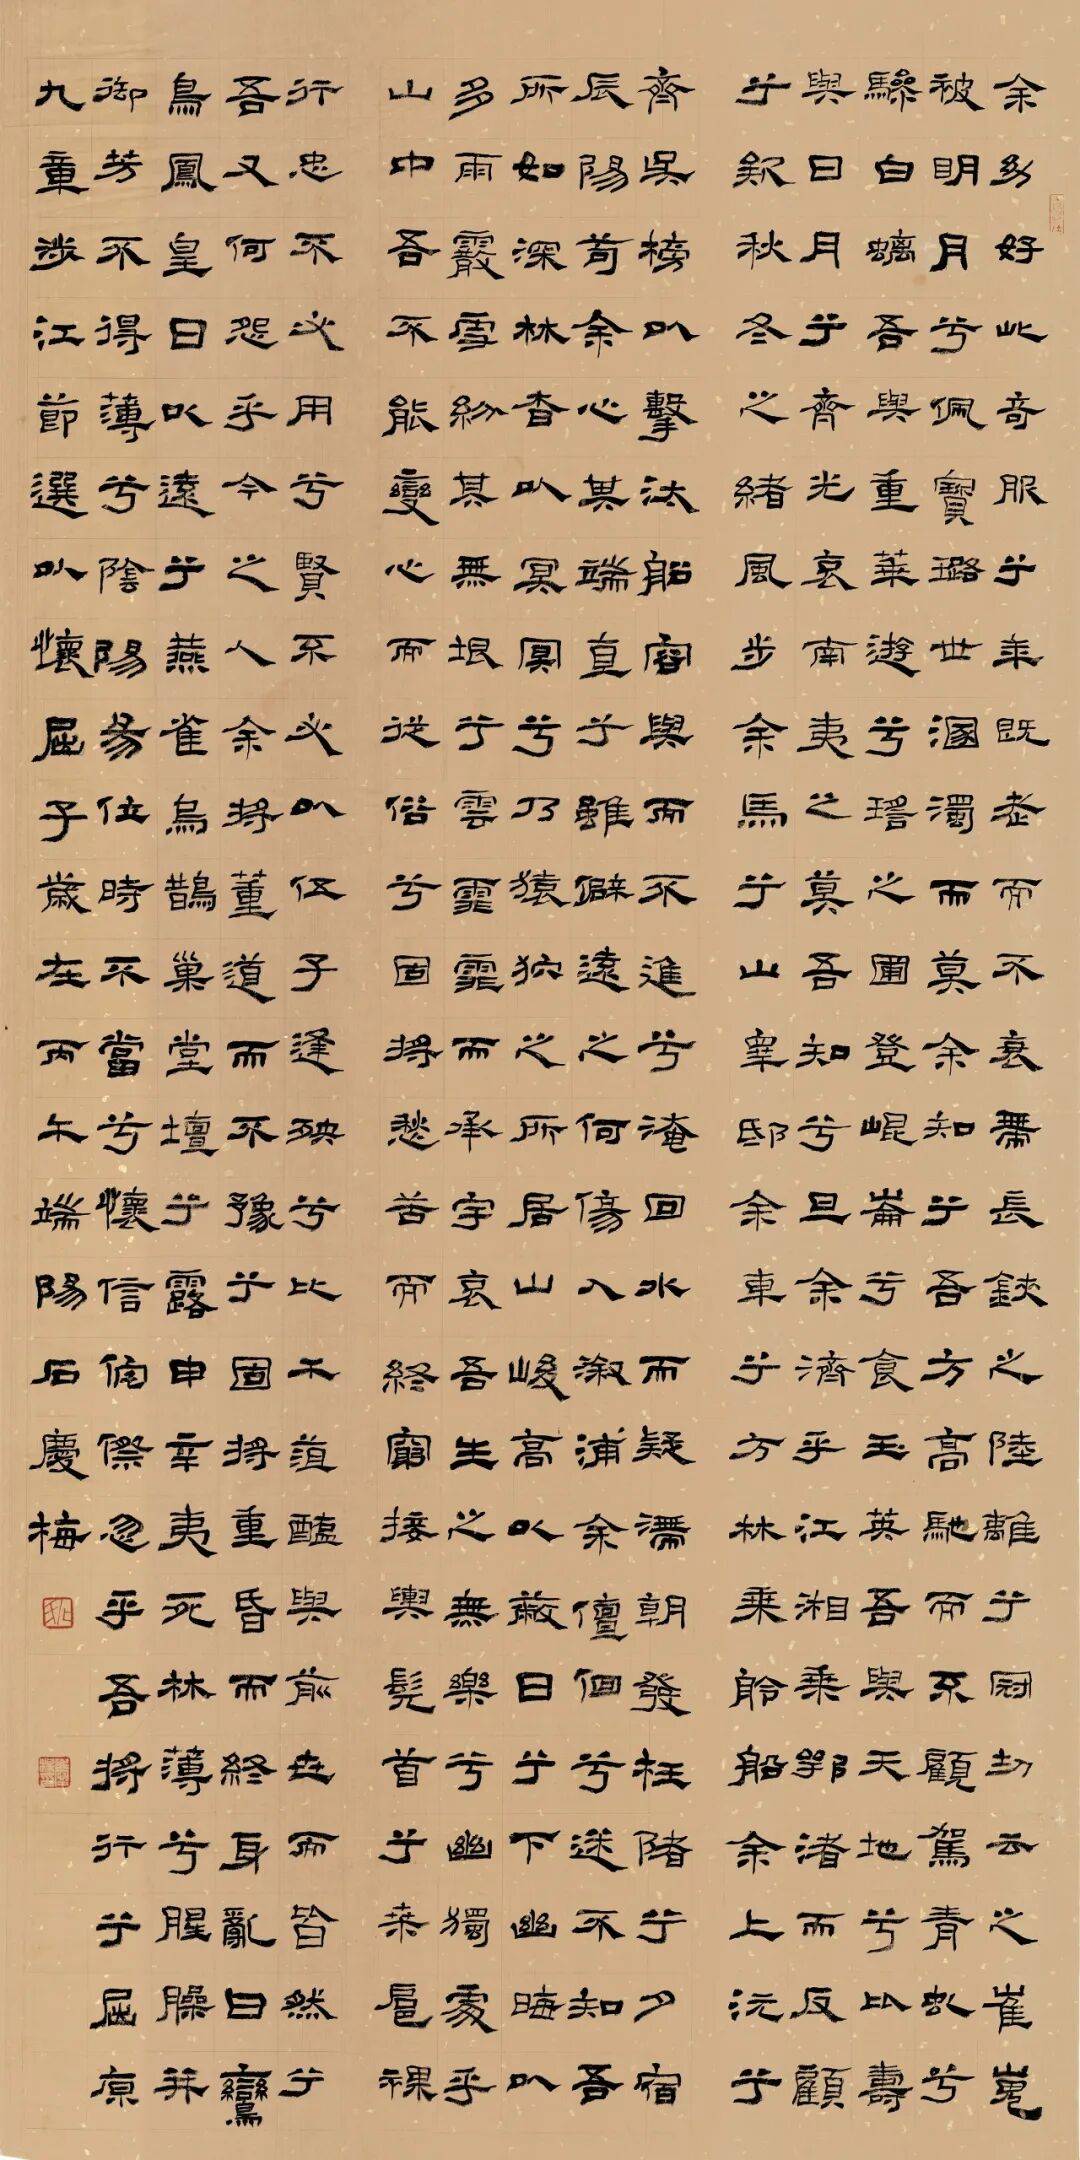 余幼好此奇服兮年既老而不衰帶長鋏之陸離兮冠切云之崔嵬
被明月兮佩寶璐世溷濁而莫余知兮吾方高馳而不顧駕青虬兮
驂白螭吾與重華遊兮瑤之圃登崐崙兮食玉英吾與天地兮比壽
與日月兮齊光哀南夷之莫吾知兮旦余濟乎江湘乘鄂渚而反顧
兮欸秋冬之緒風步余馬兮山皋邸余車兮方林乘舲船余上沅兮
齊吳榜以擊汰船容與而不進兮淹回水而疑滯朝發枉陼兮夕宿
辰陽苟余心其端直兮雖僻遠之何傷入溆浦余儃佪兮迷不知吾
所如深林杳以冥冥兮乃猿狖之所居山峻高以蔽日兮下幽晦以
多雨霰雪紛其無垠兮雲霏霏而承宇哀吾生之無樂兮幽獨處乎
山中吾不能變心而從俗兮固將愁苦而終窮接輿髡首兮桑扈裸
行忠不必用兮賢不必以伍子逢殃兮比干菹醢與前世而皆然兮
吾又何怨乎今之人余將董道而不豫兮固將重昏而終身亂曰鸞
鳥鳳皇日以遠兮燕雀烏鵲巢堂壇兮露申辛夷死林薄兮腥臊并
御芳不得薄兮陰陽易位時不當兮懷信侘傺忽乎吾將行兮屈原
九章涉江節選以懷屈子歲在丙午端陽石慶梅